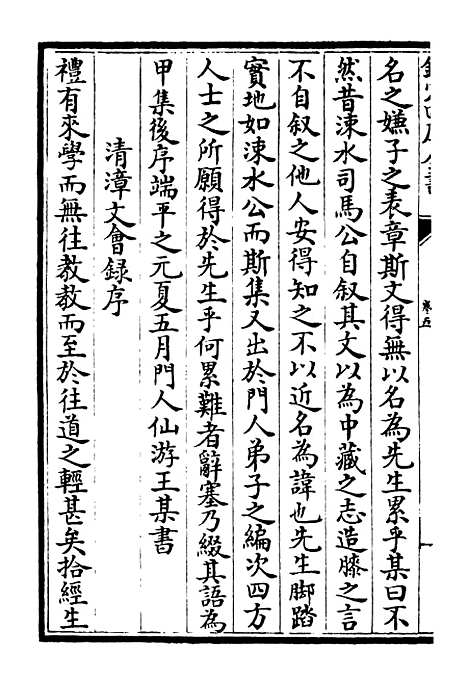 名之嫌子之表章斯文得無以名為先生累乎某曰不
然昔涑水司馬公自叙其文以為中藏之志造膝之言
不自叙之他人安得知之不以近名為諱也先生脚踏
實地如涑水公而斯集又出於門人弟子之編次四方
人士之所願得於先生乎何累難者辭塞乃綴其語為
甲集後序端平之元夏五月門人仙游王某書
清漳文會録序
禮有來學而無往教教而至於往道之輕甚矣拾經生